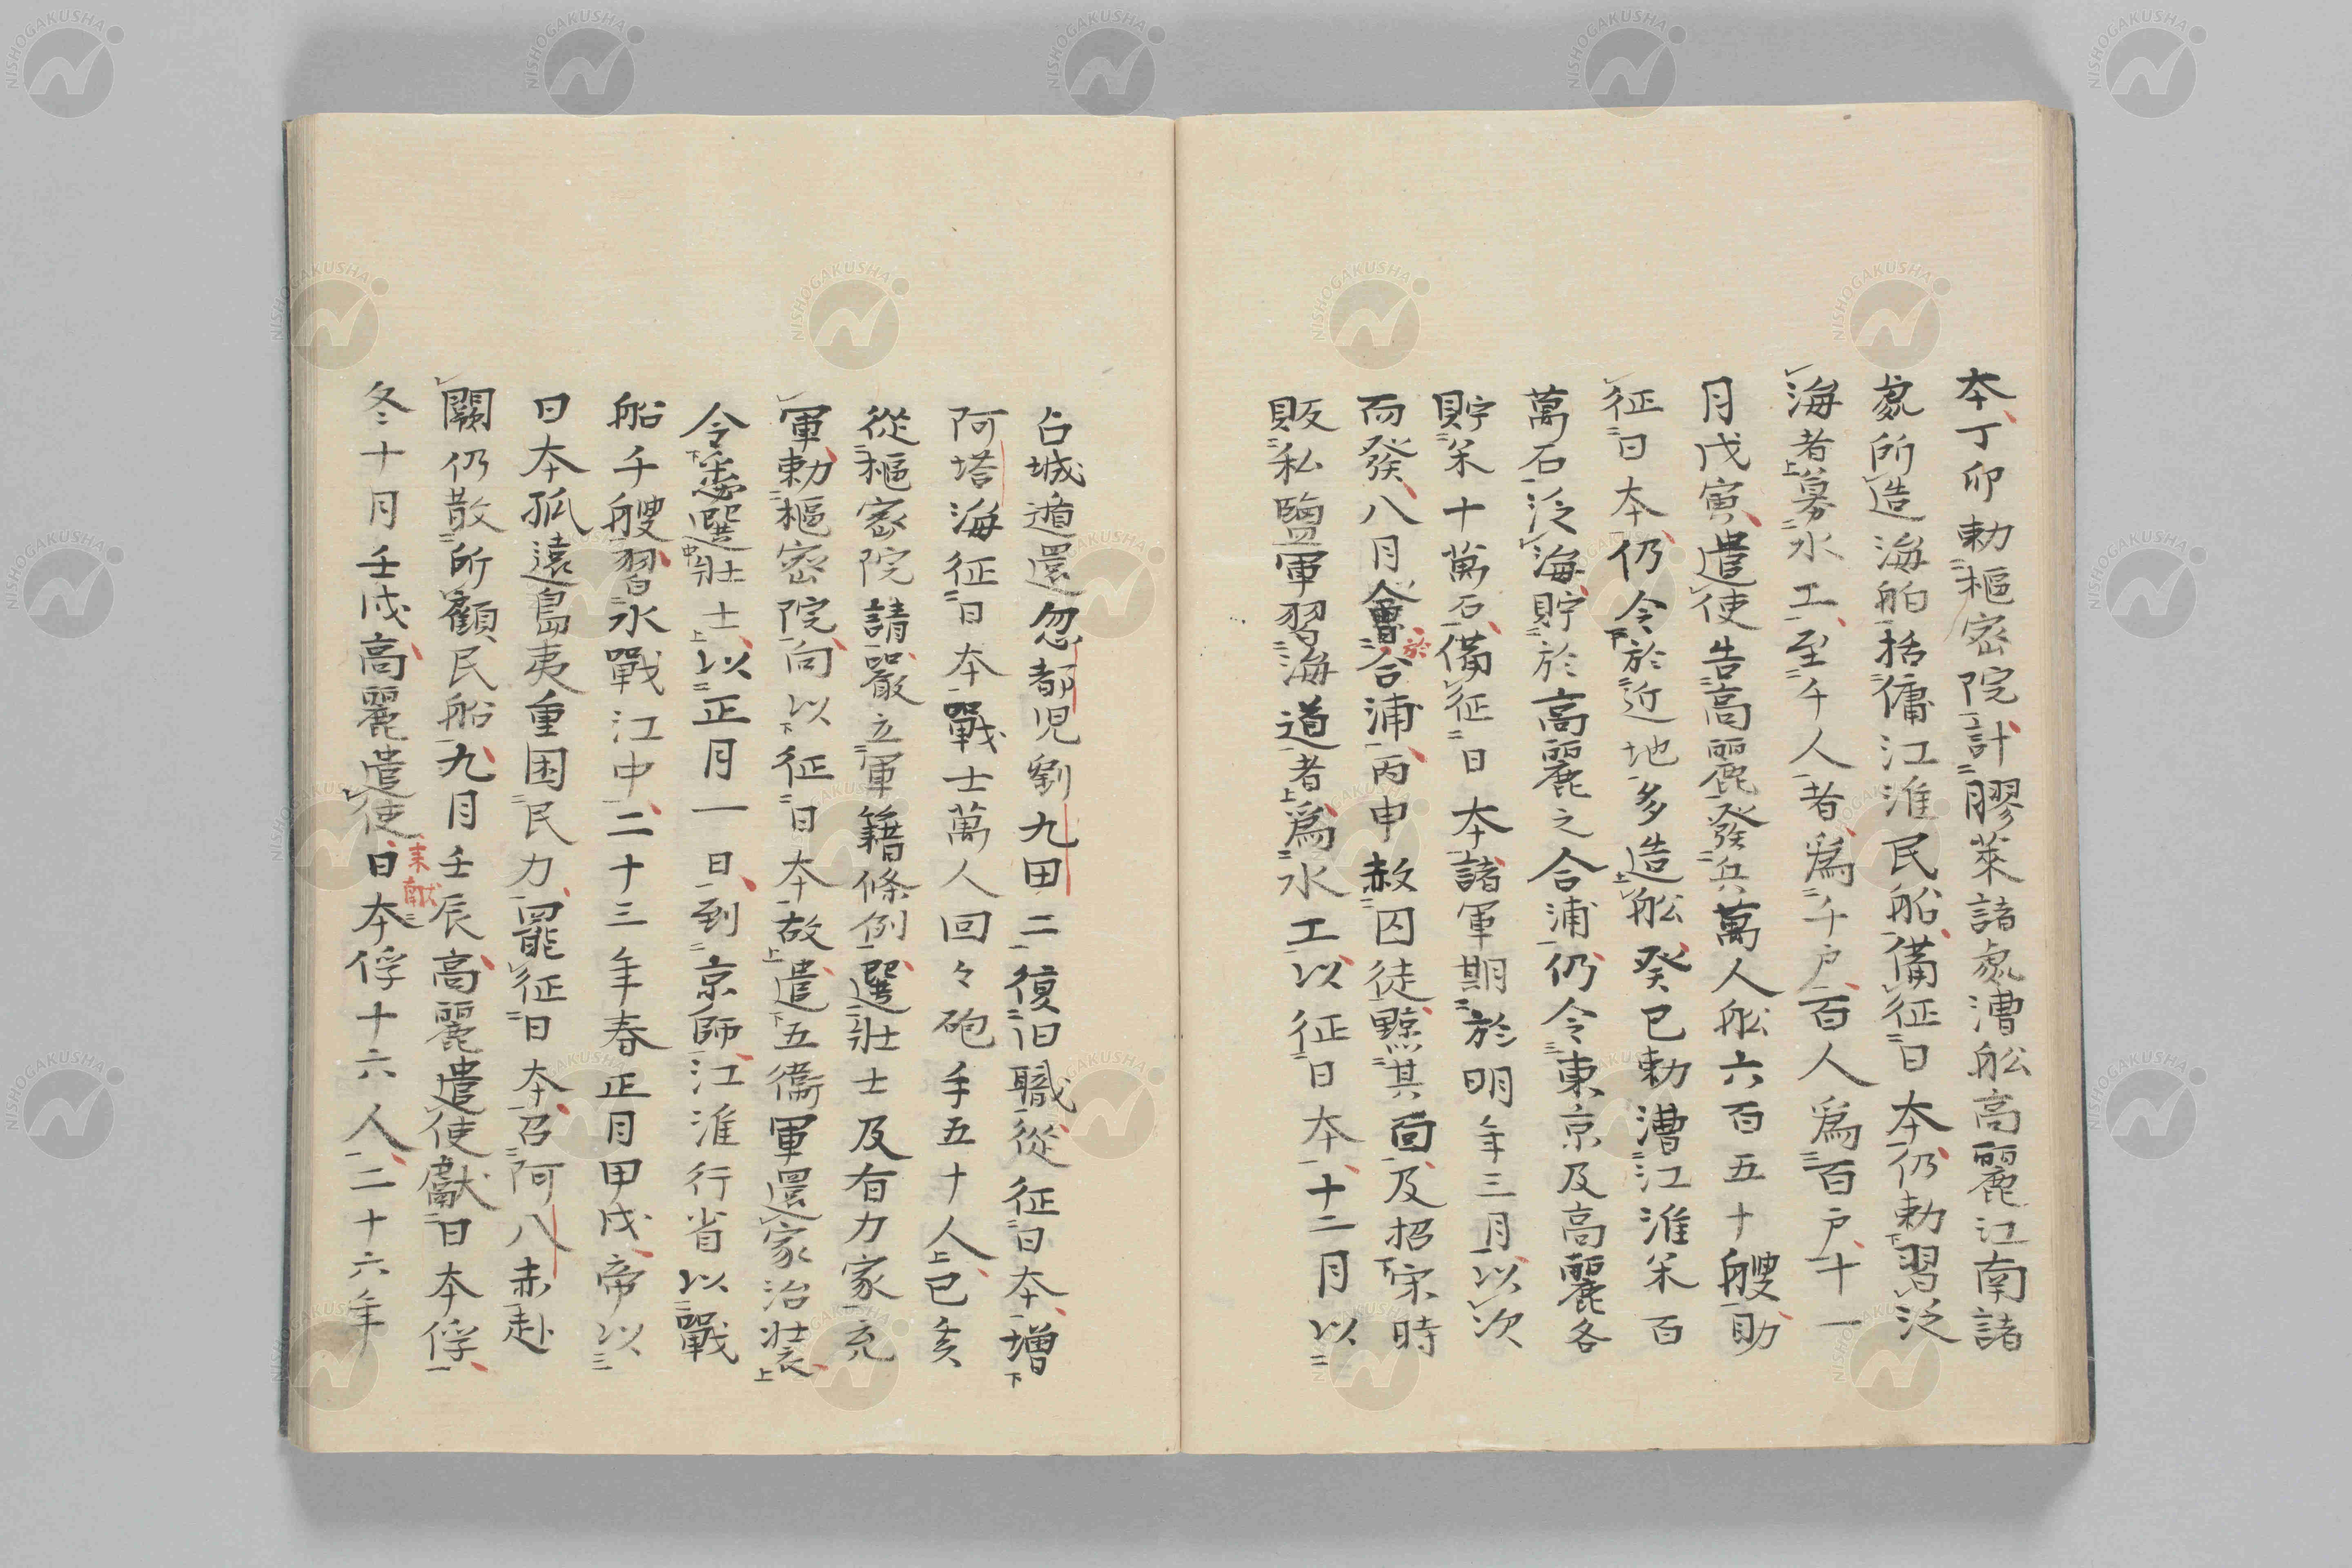 本丁卯勅樞密院計膠萊諸處漕舩高麗江南諸
處所造海舶括傭江淮民船備征日本仍勅習泛
海者募水工至千人者爲千戸百人爲百戸十一
月戊寅遣使告高麗發兵萬人舩六百五十艘助
征日本仍令於近地多造舩癸巳勅漕江淮米百
萬石泛海貯於高麗之合浦仍令東京及高麗各
貯米十萬石備征日本諸軍期於明年三月以次
而發八月會於合浦丙申赦囚徒黥其面及招宋時
販私鹽軍習海道者爲水工以征日本十二月以
占城遁還忽都児劉九田二復旧職從征日本増
阿塔海征日本戰士萬人回々砲手五十人己亥
從樞密院請嚴立軍籍條例選壯士及有力家充
軍勅樞密院向以征日本故遣五衞軍還家治装
今悉選壯士以正月一日到京師江淮行省以戰
船千艘習水戰江中二十三年春正月甲戌帝以
日本孤遠島夷重困民力罷征日本召阿八赤赴
闕仍散所顧民船九月壬辰高麗遣使獻日本俘
冬十月壬戌高麗遣使来献日本俘十六人二十六年
NISHOGAKUSHA